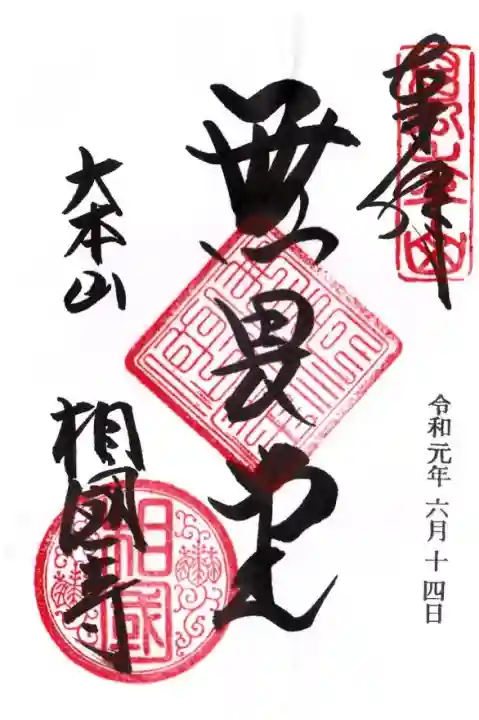 奉拝
令和元年 六月 十四日
無畏堂
大本山
相國寺
相国